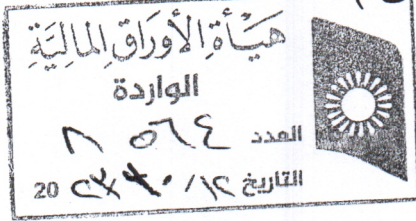 هيأة الأوراق المالية
الواردة
العدد ٨٥٦٤
التاريخ ١٢/ 20٢٣